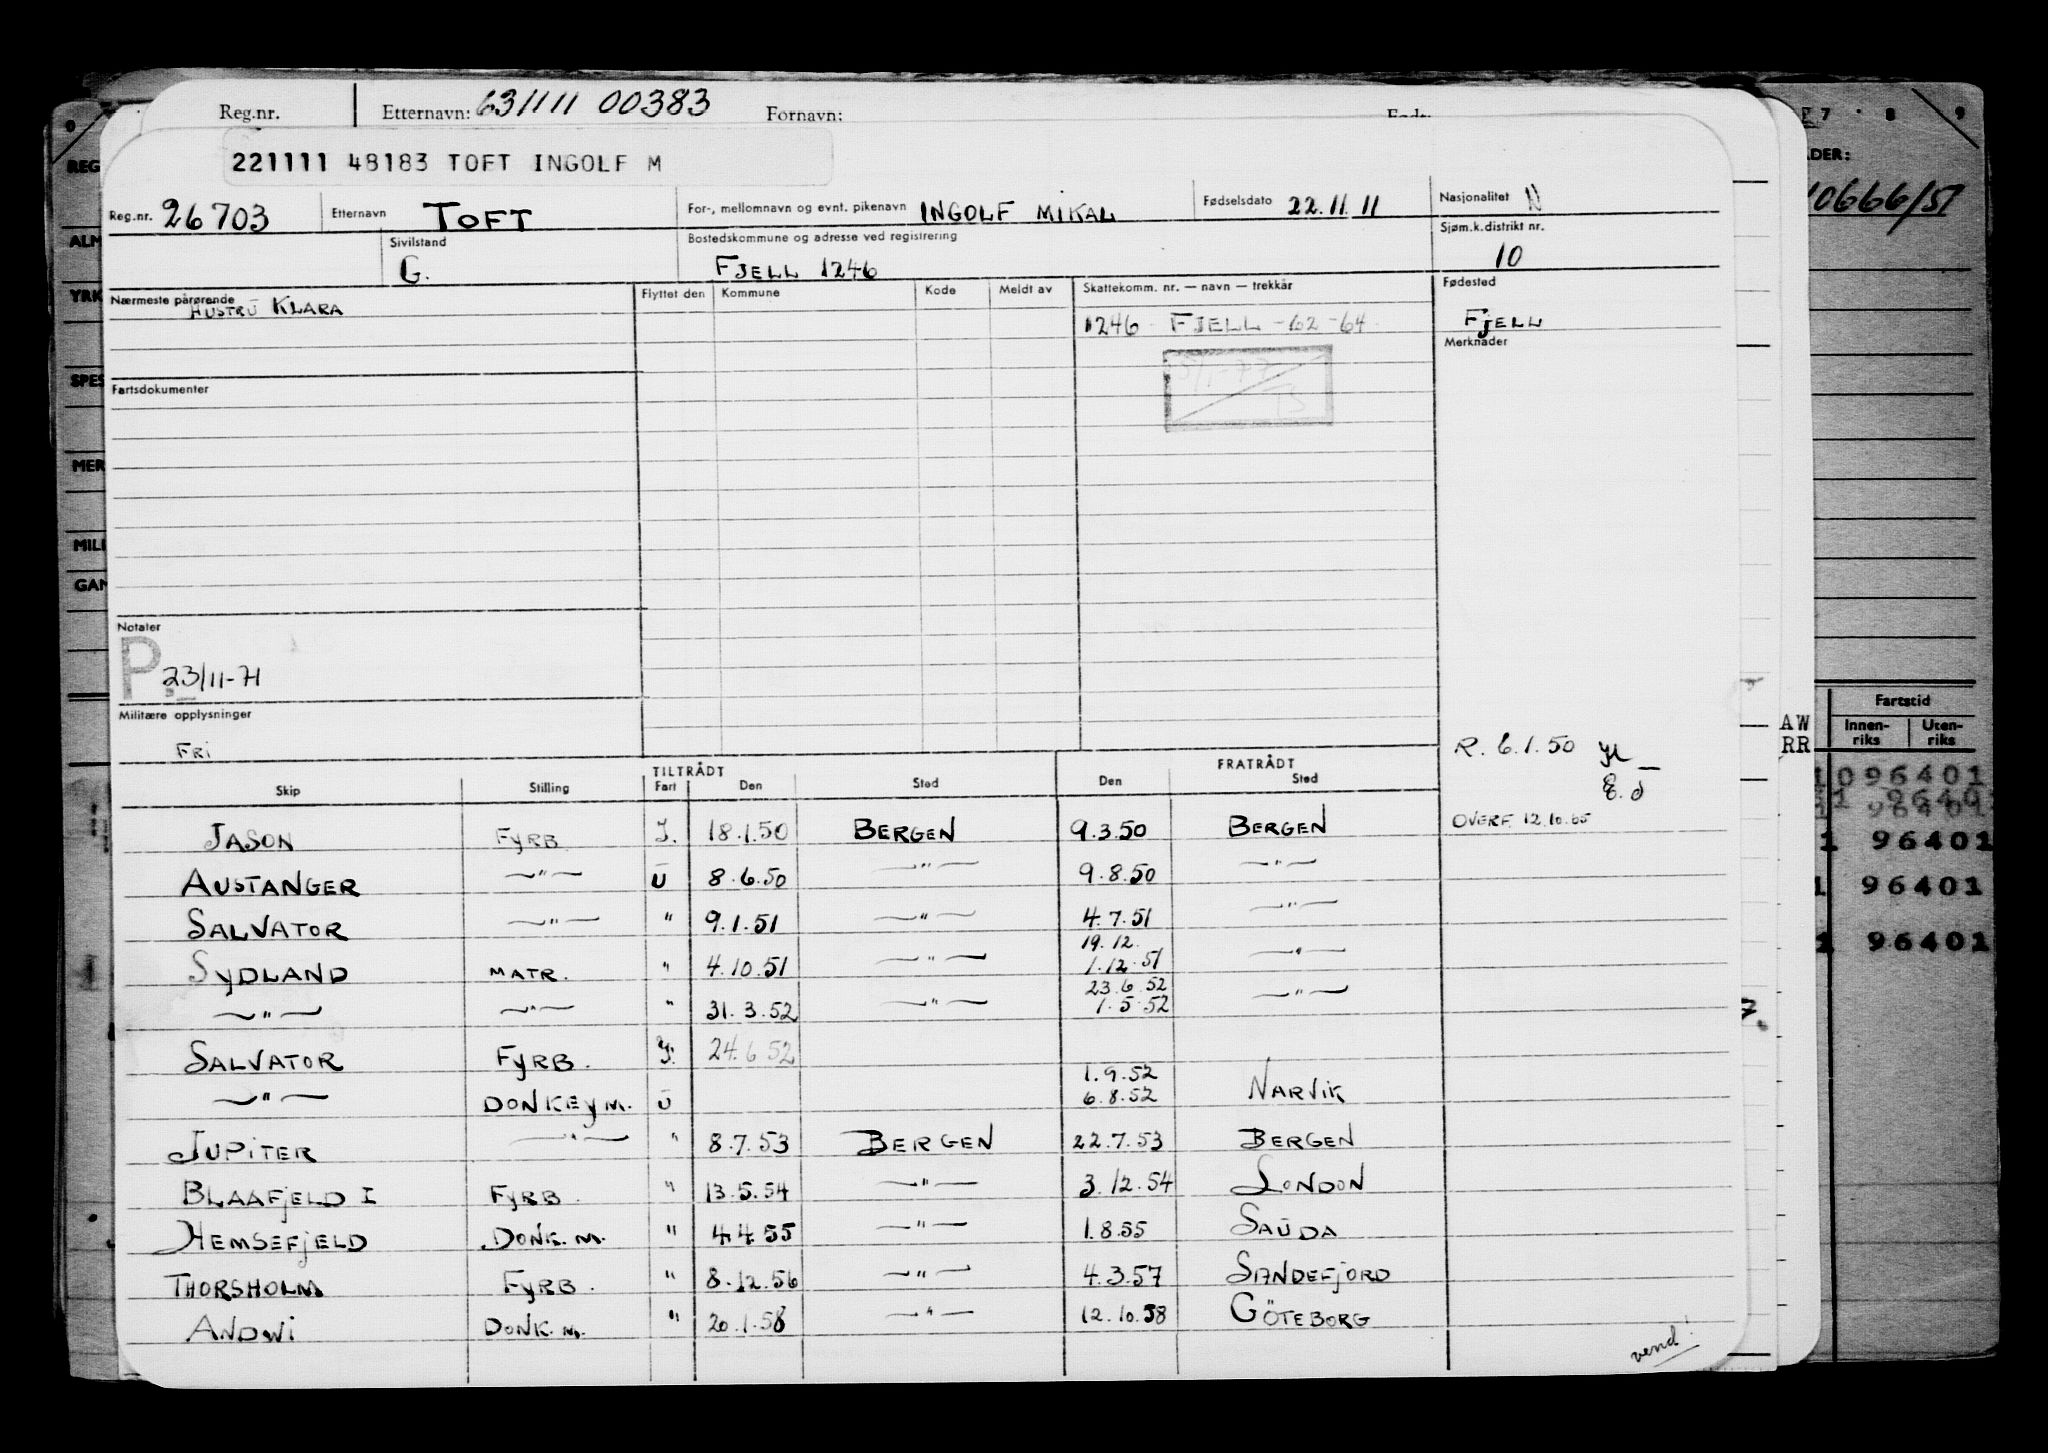 Reg.nr. Etternavn: 631111 00383 Fornavn:
221111 48183 TOFT INGOLF M
Reg.nr. 26703 Etternavn TOFT For-, mellomnavn og evnt. pikenavn INGOLF MIKAL Fødselsdato 22.11.11 Nasjonalitet N
Sivilstand G. Bostedskommune og adresse ved registrering FJELL 1246 Sjøm.k.distrikt nr. 10
Nærmeste pårørende HUSTRU KLARA Flyttet den Kommune Kode Meldt av Skattekomm. nr. — navn — trekkår Fødested
1246 - FJELL - 62 - 64 FJELL
Merknader
Fartsdokumenter
Notater
P 23/11-71
Militære opplysninger
FRI
R. 6.1.50
E.d
OVERF. 12.10.65
TILTRÅDT FRATRÅDT
Skip Stilling Fart Den Sted Den Sted
JASON FYRB. I. 18.1.50 BERGEN 9.3.50 BERGEN
AUSTANGER —"— U 8.6.50 —"— 9.8.50 —"—
SALVATOR —"— " 9.1.51 —"— 4.7.51 —"—
19.12.
SYDLAND MATR. " 4.10.51 —"— 1.12.51 —"—
23.6.52
—"— —"— " 31.3.52 —"— 1.5.52 —"—
SALVATOR FYRB. I. 24.6.52
1.9.52
—"— DONKEYM. U 6.8.52 NARVIK
JUPITER —"— " 8.7.53 BERGEN 22.7.53 BERGEN
BLAAFJELD I FYRB. " 13.5.54 —"— 3.12.54 LONDON
HEMSEFJELD DONK.M. " 4.4.55 —"— 1.8.55 SAUDA
THORSHOLM FYRB. " 8.12.56 —"— 4.3.57 SANDEFJORD
ANDWI DONK.M. " 20.1.58 —"— 12.10.58 GÖTEBORG
vend!
REG
ALM
YRK
SPES
MER
MILI
GAN
7 8 9
DER:
10666/51
Fartstid
Innen-riks Uten-riks
AW
RR
1096401
1 96401
1 96401
1 96401